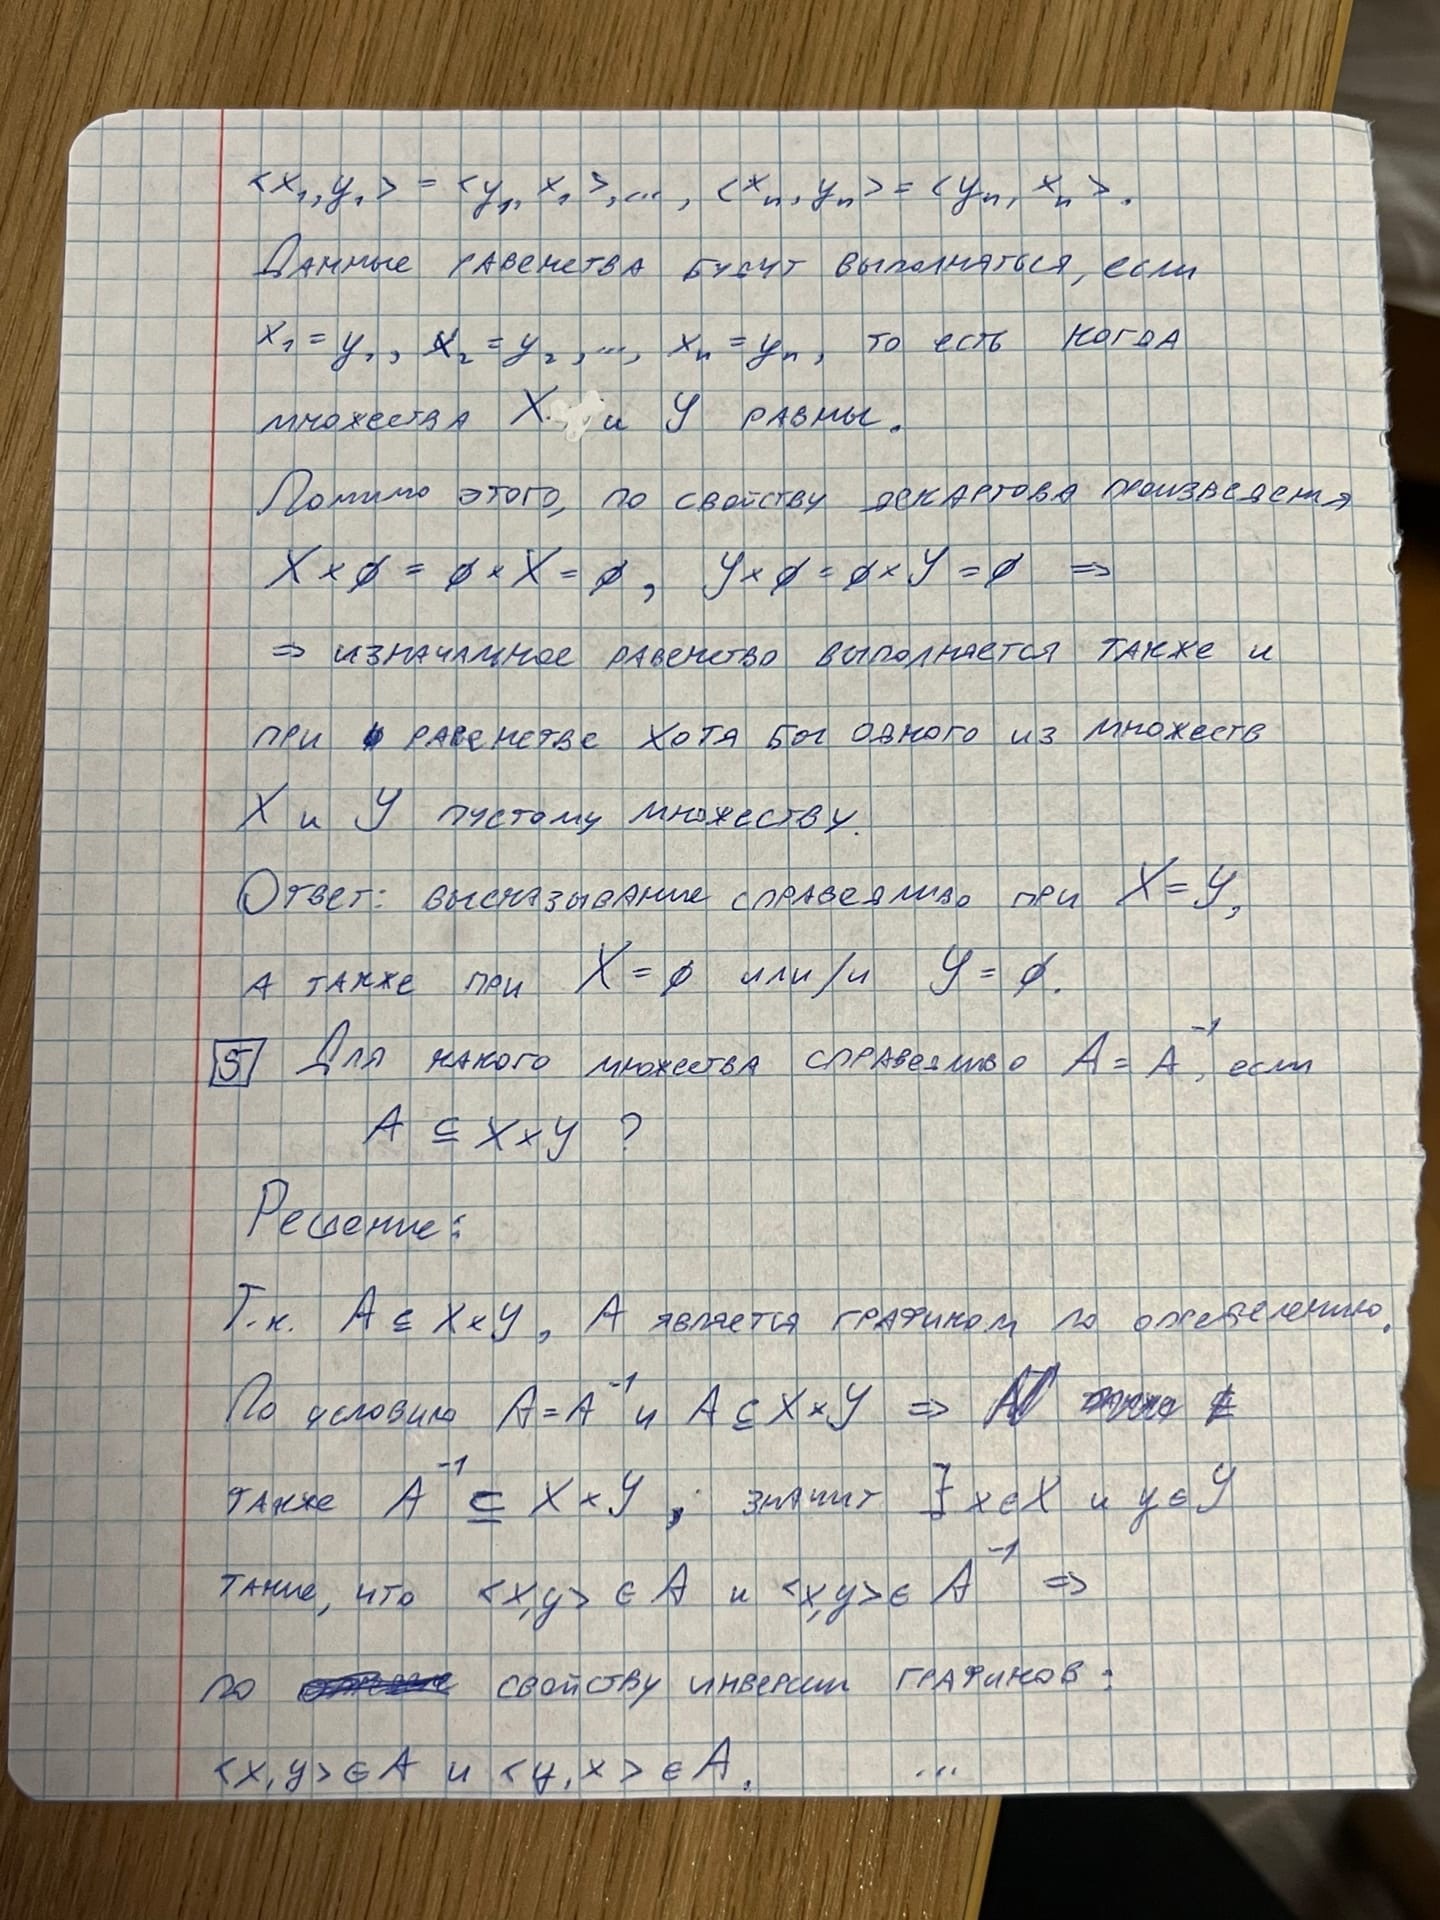 <x₁, y₁> = <y₁, x₁>, ..., <xₙ, yₙ> = <yₙ, xₙ>.
Данные равенства будут выполняться, если
x₁ = y₁, x₂ = y₂, ..., xₙ = yₙ, то есть когда
множества X и Y равны.
Помимо этого, по свойству декартова произведения
X × ∅ = ∅ × X = ∅, Y × ∅ = ∅ × Y = ∅ ⇒
⇒ изначальное равенство выполняется также и
при равенстве хотя бы одного из множеств
X и Y пустому множеству.
Ответ: высказывание справедливо при X = Y,
а также при X = ∅ или/и Y = ∅.
5 Для какого множества справедливо A = A⁻¹, если
A ⊆ X × Y ?
Решение:
Т.к. A ⊆ X × Y, A является графиком по определению.
По условию A = A⁻¹ и A ⊆ X × Y ⇒
также A⁻¹ ⊆ X × Y, значит ∃ x ∈ X и y ∈ Y
такие, что <x, y> ∈ A и <x, y> ∈ A⁻¹ ⇒
по свойству инверсии графиков:
<x, y> ∈ A и <y, x> ∈ A. ...